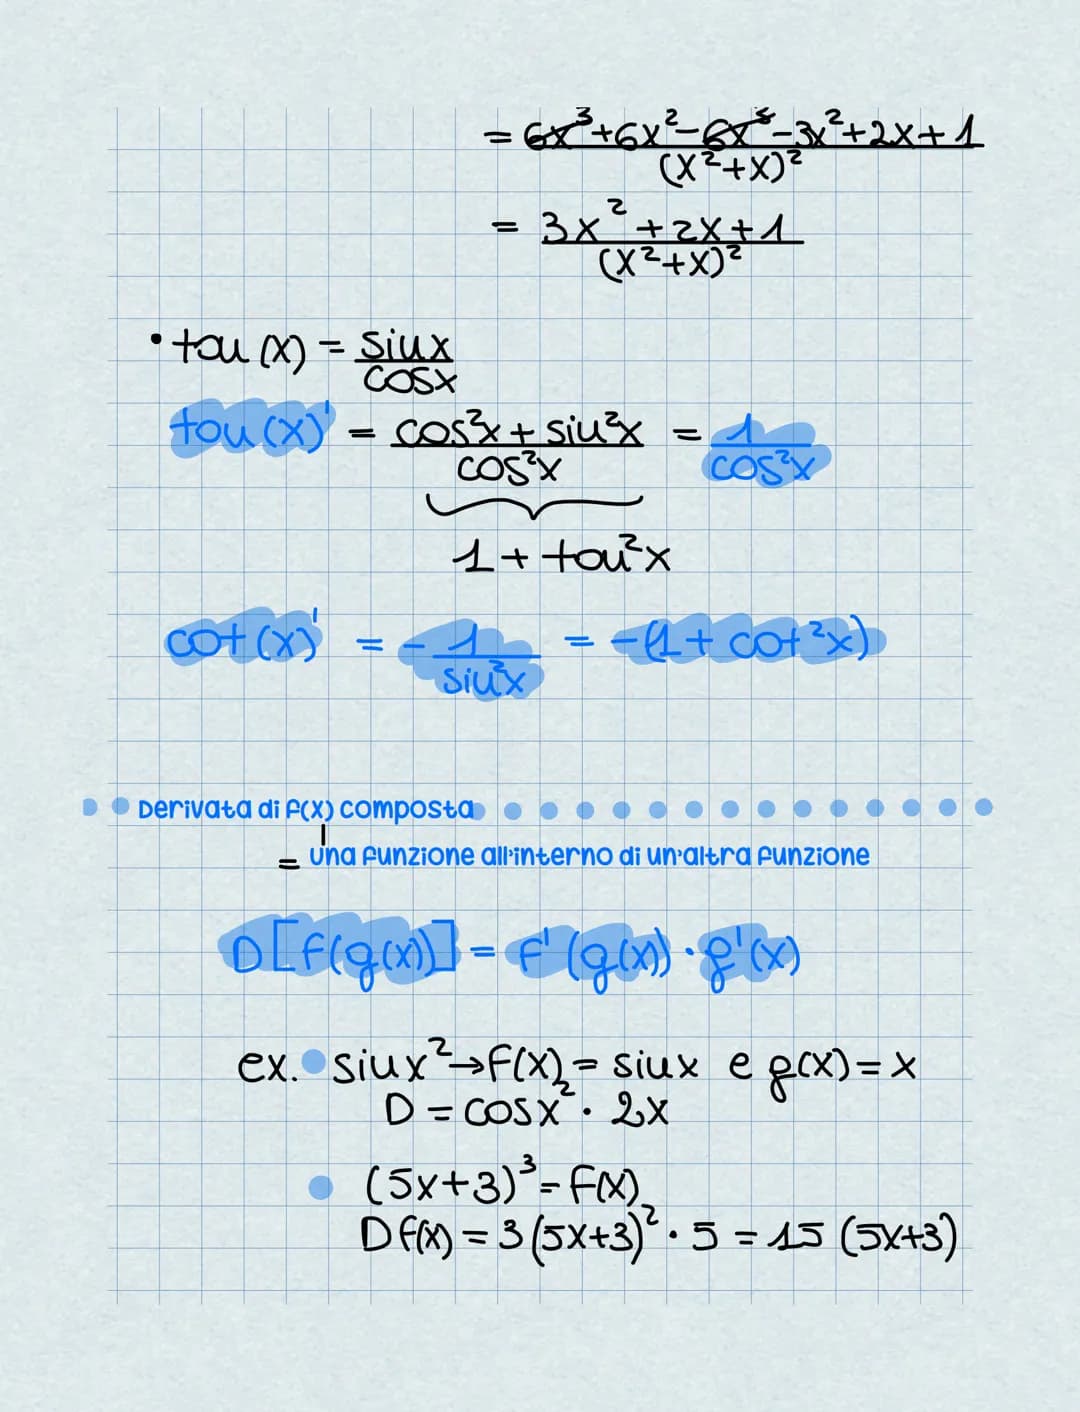 = 6x³+6x²-6x³-3x²+2x+1
(x²+x)²
= 3x²+2x+1
(x²+x)²
• tan (x) = sinx
cosx
tan(x)' = cos²x + sin²x = 1
cos²x cos²x
1 + tan²x
cot(x)' = - 1 = -(1 + cot²x)
sin²x
Derivata di f(x) composta
= una funzione all'interno di un'altra funzione
D[f(g(x))] = f'(g(x)) · g'(x)
ex. sinx² → f(x) = sinx e g(x) = x
D = cosx² · 2x
(5x+3)³ = f(x)
D f(x) = 3(5x+3)² · 5 = 15 (5x+3)